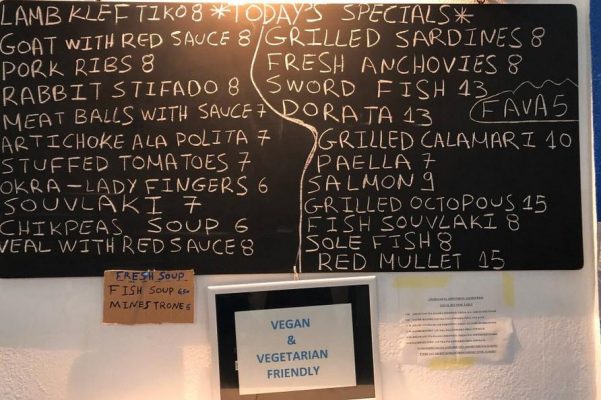 *TODAY'S SPECIALS*
LAMB KLEFTIKO 8
GOAT WITH RED SAUCE 8
PORK RIBS 8
RABBIT STIFADO 8
MEAT BALLS WITH SAUCE 7
ARTICHOKE ALA POLITA 7
STUFFED TOMATOES 7
OKRA-LADY FINGERS 6
SOUVLAKI 7
CHIKPEAS SOUP 6
VEAL WITH RED SAUCE 8
GRILLED SARDINES 8
FRESH ANCHOVIES 8
SWORD FISH 13
DORATA 13
FAVA 5
GRILLED CALAMARI 10
PAELLA 7
SALMON 9
GRILLED OCTOPOUS 15
FISH SOUVLAKI 8
SOLE FISH 8
RED MULLET 15
FRESH SOUP
FISH SOUP 6,50
MINESTRONE 6
VEGAN
&
VEGETARIAN
FRIENDLY